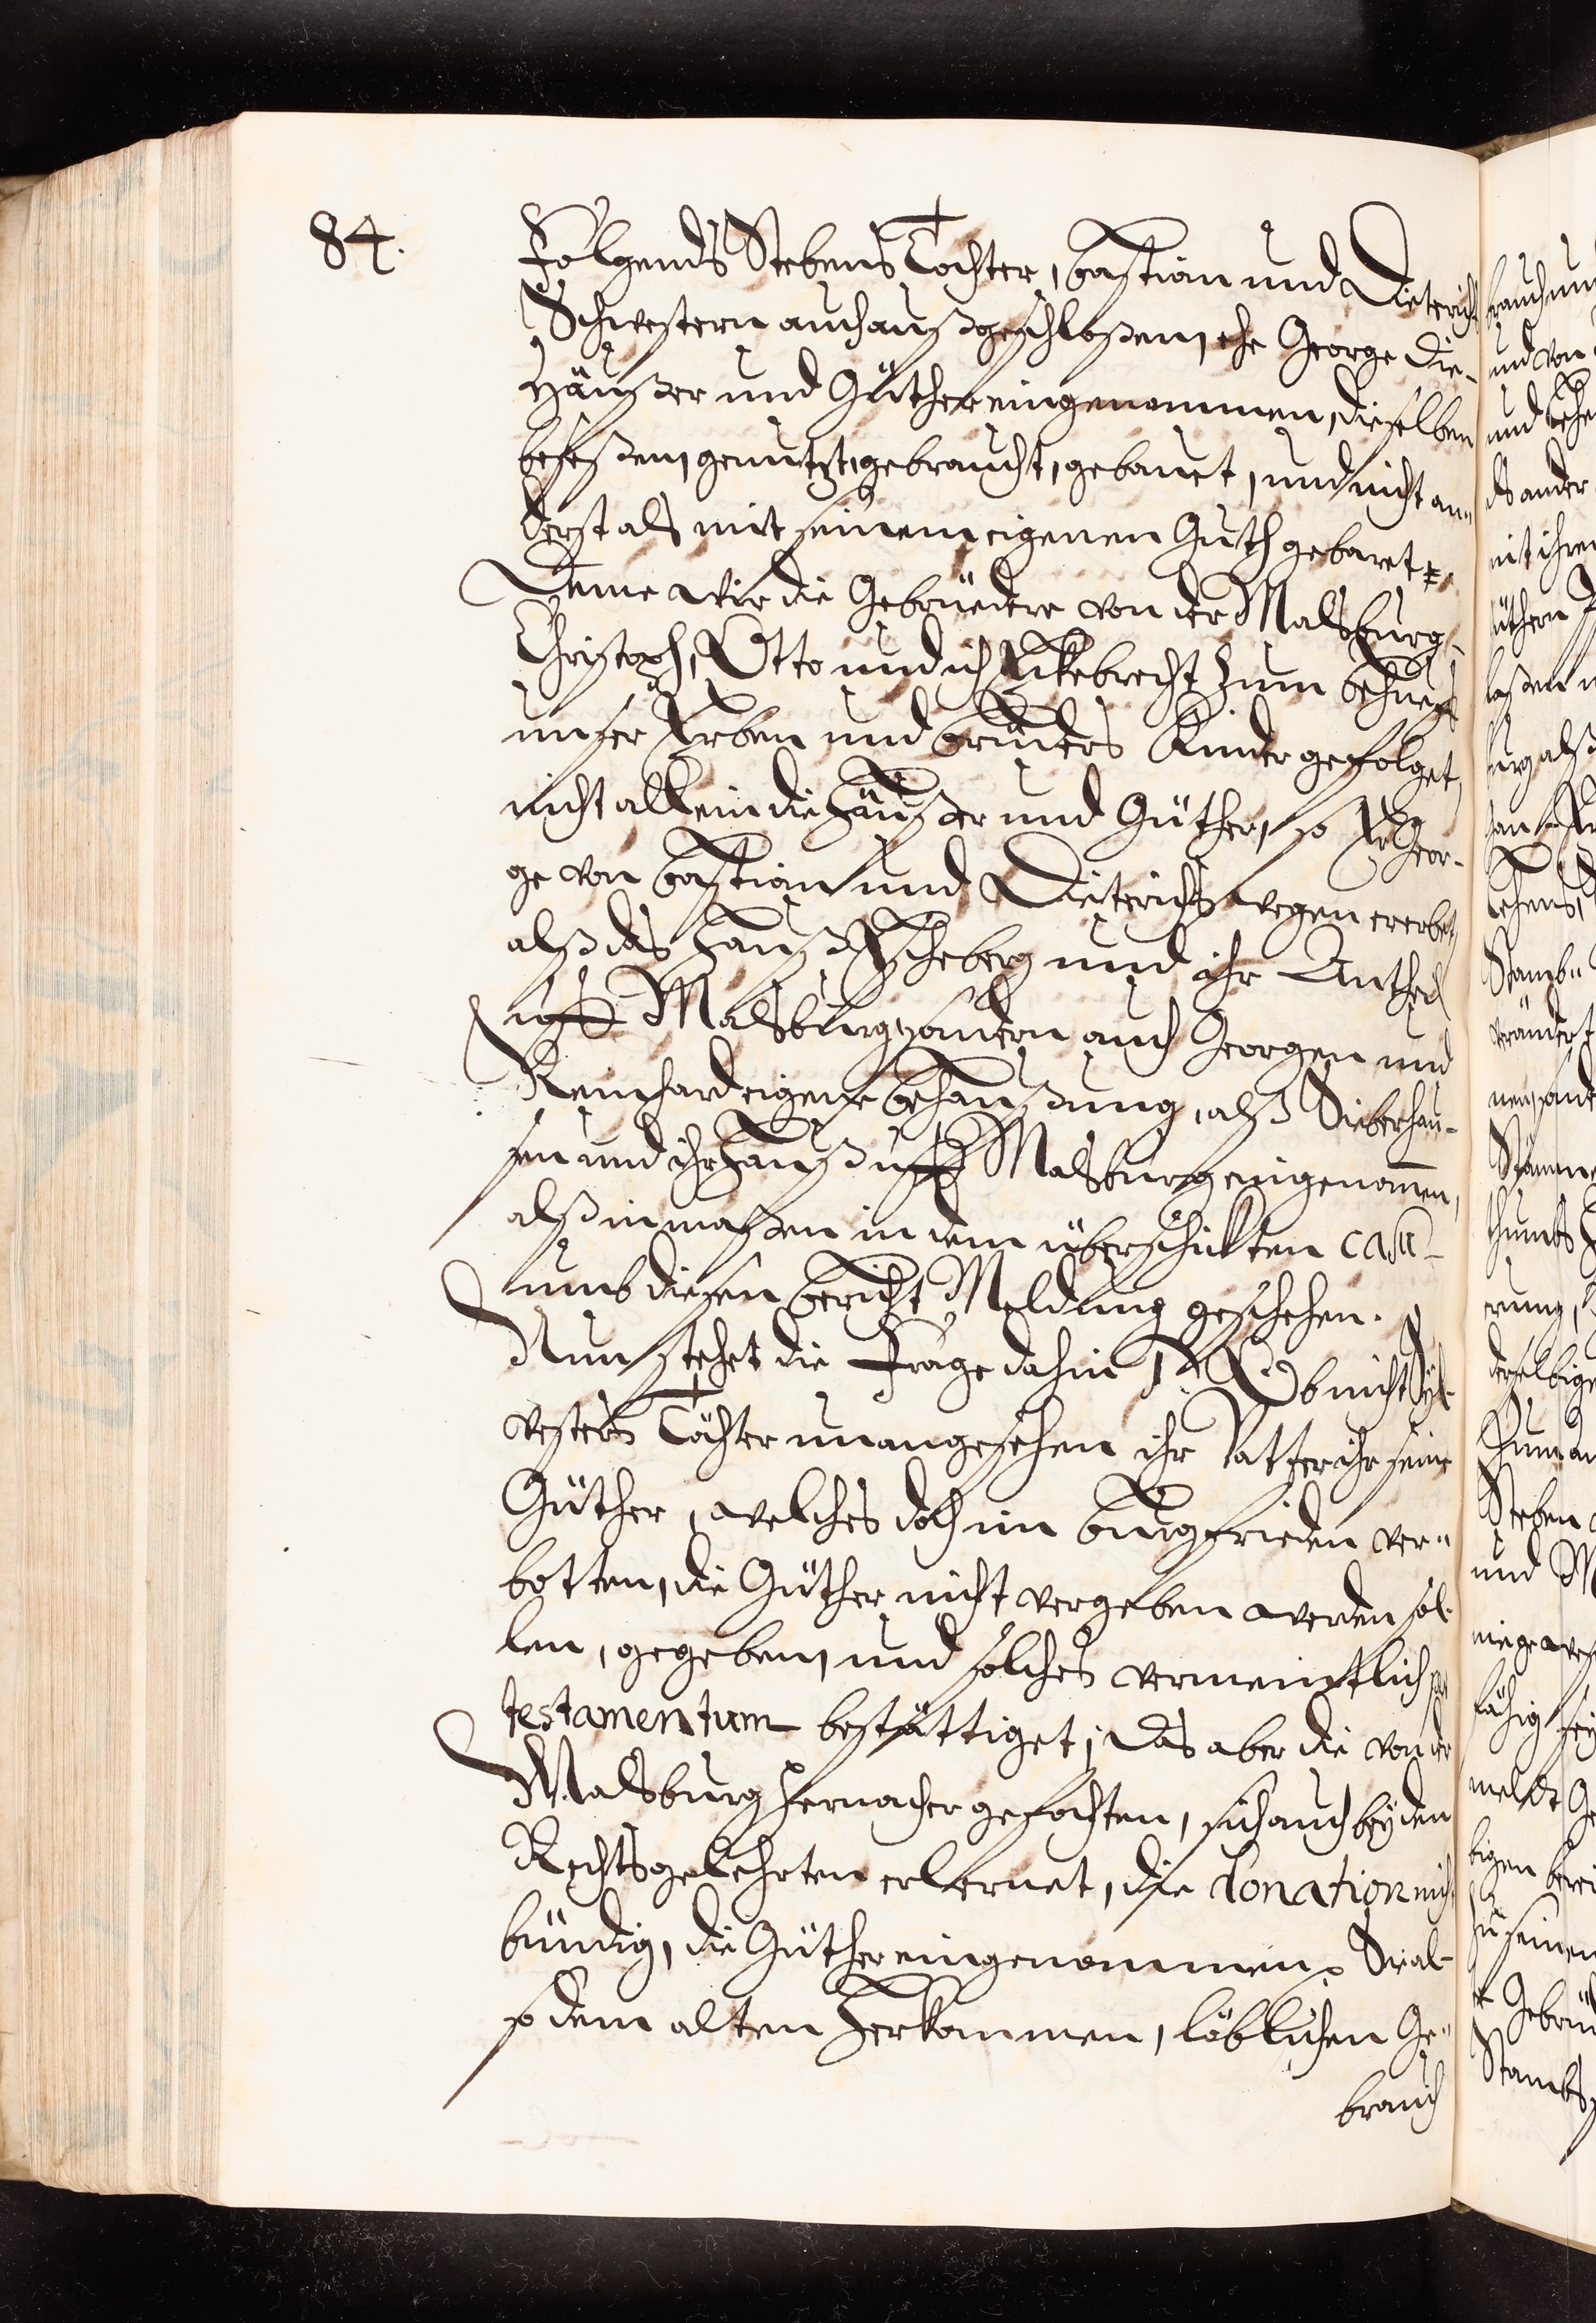 84.
Folgends Stebens Tochter, Bastian und Dieterichs
Schwestern auch außgeschloßen, ehe George die-
Häußer und Güther eingenommen, dieselben
beseßen, genutzt, gebraucht, gebauet, und nicht an-
derst als mit seinem eigenen Guth gebaret
Deme wir die Gebrüedere von der Malsburg
Christoph, Otto und ich Eckebrecht zum behueff
unser Erben und brüders Kinder gefolget,
nicht allein die Häußer und Güther, so Er Geor-
ge von Bastian und Dieterichs wegen ererbet,
alß das Hauß Escheberg und ihr Antheil
uff Malsburg, sondern auch Georgen und
Reinhard eigene behaußung, alß Sieberhau-
sen und ihr Hauß uff Malsburg eingenommen,
alß inmaßen in dem überschickten casu
umb diesen bericht Meldung geschehen.
Nun stehet die Frage dahin Ob nicht Syl-
vesters Töchter unangesehen ihr Vatter ihr seine
Güther, welches doch im Burgfrieden ver-
botten, die Güther nicht vergeben werden sol-
len, gegeben, und solches vermeintlich per
testamentum bestättiget; das aber die von der
Malsburg hernacher gefochten, sich auch bey den
Rechtsgelehrten erlernet, die donation nicht
bündig, die Güther eingenommen, Sie al-
so dem alten Herkommen, löblichen Ge-
brauch